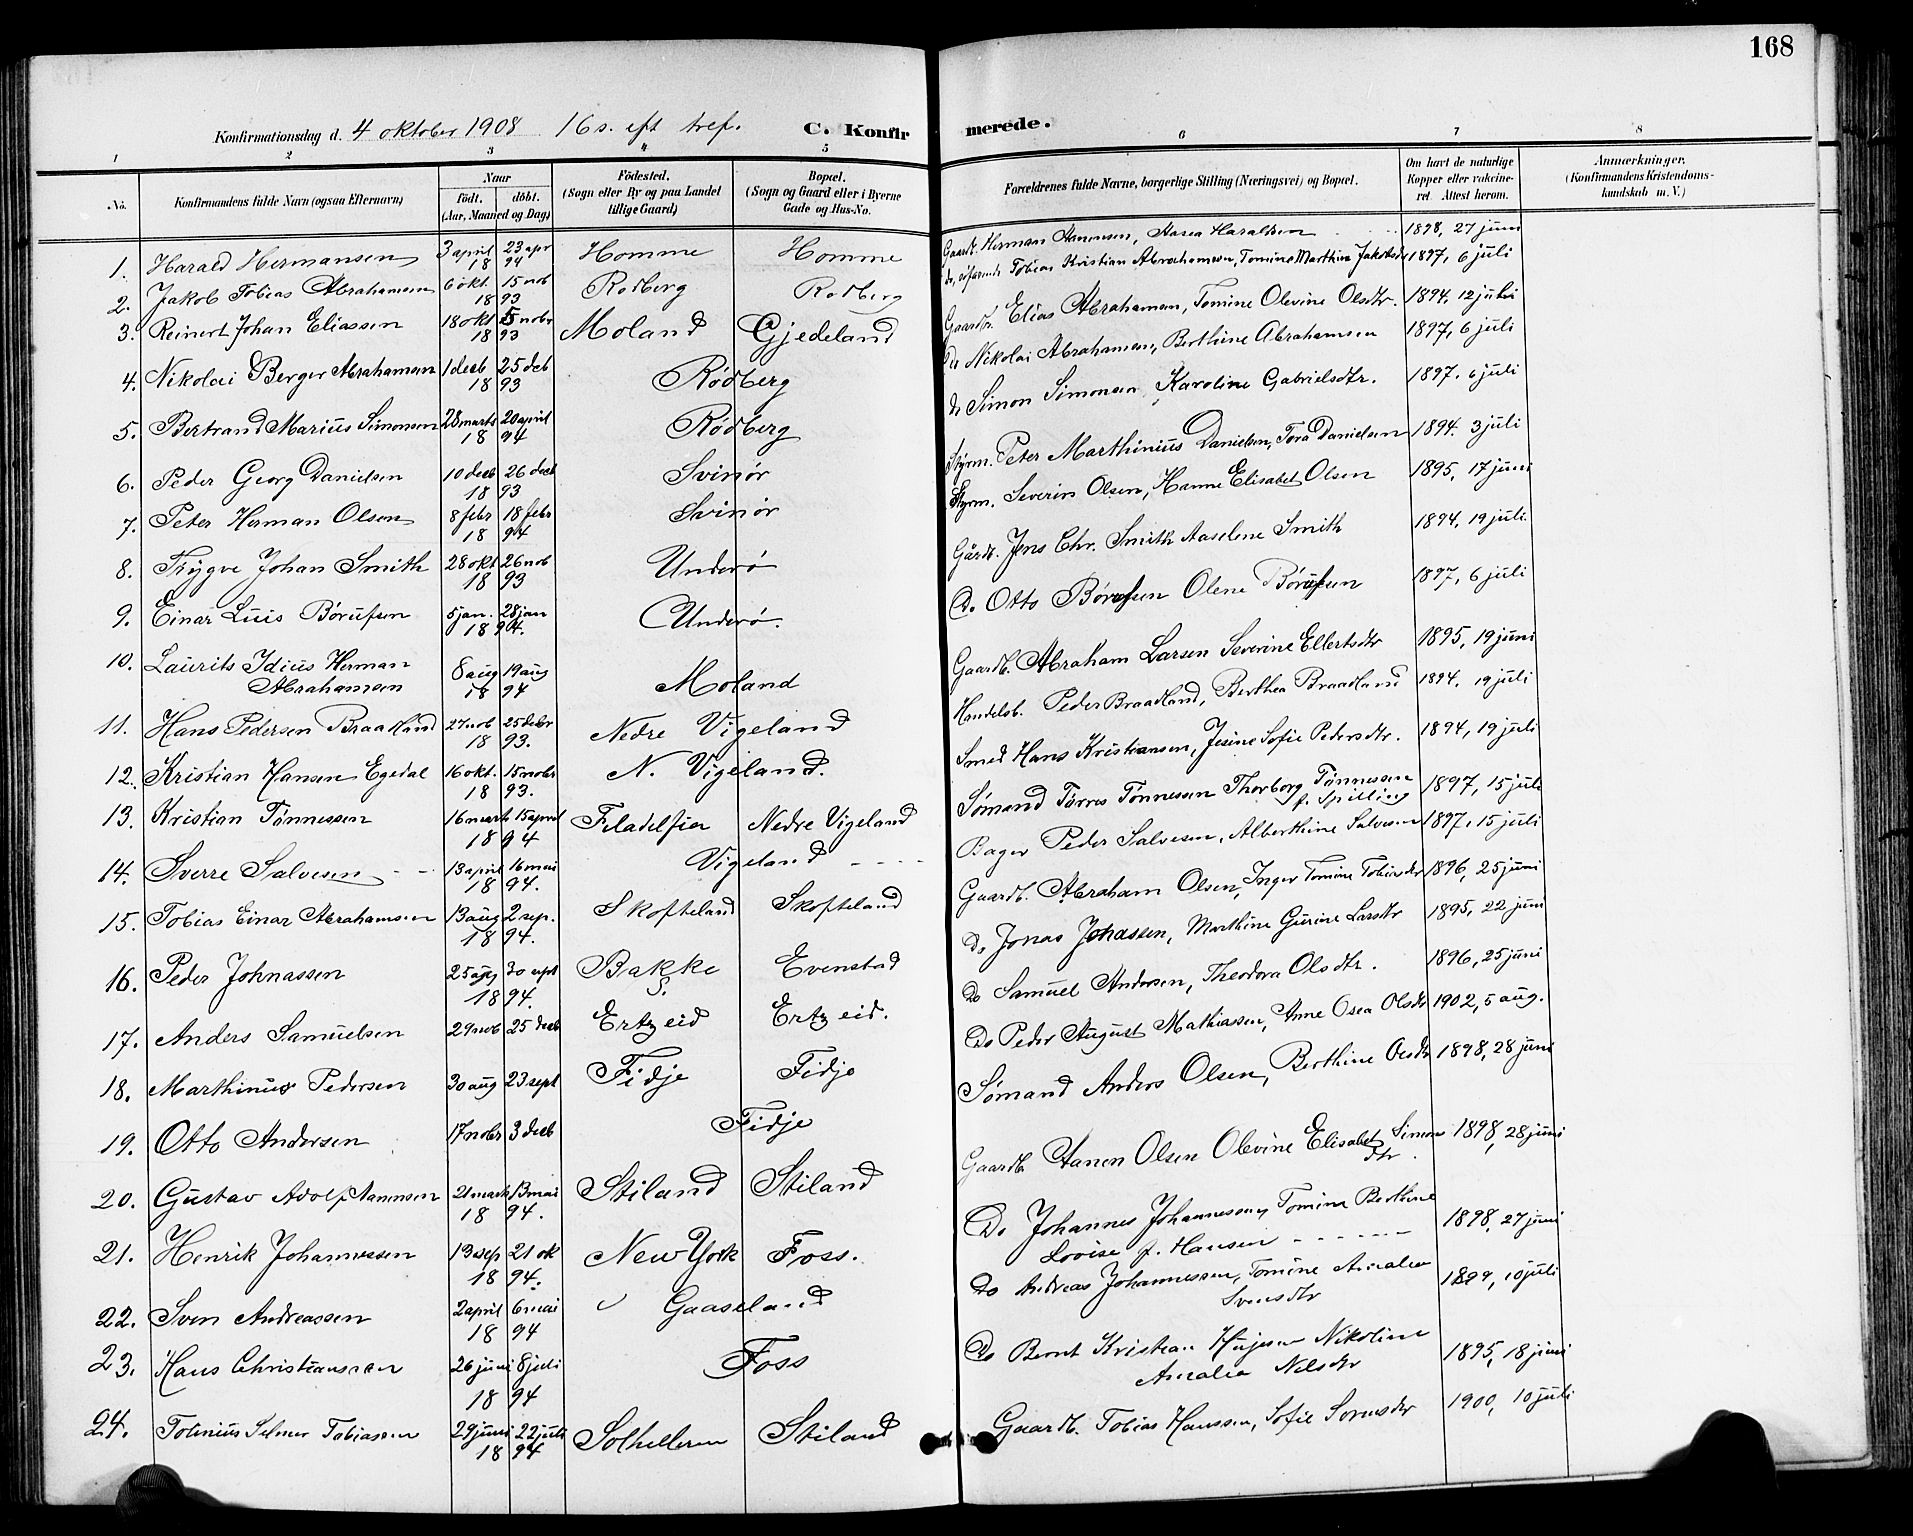 168
Konfirmationsdag d. 4 oktober 1908 16 s. eft tref. C. Konfirmerede.
1 2 3 4 5 6 7 8
No. Konfirmandens fulde Navn (ogsaa Efternavn) Naar Født. døbt. (Aar, Maaned og Dag) Fødested. (Sogn eller By og paa Landet tillige Gaard) Bopæl. (Sogn og Gaard eller i Byerne Gade og Hus-No. Forældrenes fulde Navne, borgerlige Stilling (Næringsvei) og Bopæl. Om havt de naturlige Kopper eller vaccineret. Attest herom. Anmærkninger. (Konfirmandens Kristendomskundskab m. V.)
1. Harald Hermansen 3 april 23 apr 18 94 Homme Homme Gaardb. Herman Aanensen, Aasea Haraldsen 1898, 27 juni
2. Jakob Tobias Abrahamsen 6 okt. 15 nob 18 93 Rødberg Rødberg do, Tobias Kristian Abrahamsen, Tomine Marthine Jakobsdr 1897, 6 juli
3. Reinert Johan Eliassen 18 okt 5 nobr 18 93 Moland Gjedeland Gaardbr. Elias Abrahamsen, Tomine Olevine Olsdtr. 1894, 12 juli
4. Nikolai Berger Abrahamsen 1 decb 25 deb 18 93 Rødberg Do Nikolai Abrahamsen, Berthine Abrahamsen 1897, 6 juli
5. Bertrand Marius Simonsen 28 marts 20 april 18 94 Rødberg do Simon Simonsen, Karoline Gabrielsdtr. 1897. 6 juli
6. Peder Georg Danielsen 10 decb 26 decb 18 93 Svinør Styrm. Peter Marthinius Danielsen, Tora Danielsen 1894. 3 juli
7. Peter Herman Olsen 8 febr 18 febr 18 94 Svinør Styrm. Severin Olsen, Hanne Elisabet Olsen 1895, 17 juni
8. Trygve Johan Smith 28 okt 26 nob 18 93 Underø Gårdb. Jens Chr. Smith Aaselene Smith 1894, 19 juli
9. Einar Luis Børufsen 5 jan. 28 jan 18 94. Underø. Do Otto Børufsen Olene Børufsen 1897, 6 juli
10. Laurits Idius Herman
Abrahamsen 8 aug 19 aug 18 94 Moland Gaardb. Abraham Larsen Severine Ellertsdtr 1895, 19 juni
11. Hans Pedersen Braadland 27 nob 25 debr 18 93. Nedre Vigeland Handelsb. Peder Braadland, Berthea Braadland 1894, 19 juli
12. Kristian Hansen Egedal 16 okt. 15 nobr 18 93. N. Vigeland. Smed Hans Kristiansen, Jesine Sofie Pedersdtr. 1894, 19 juli
13. Kristian Tønnessen 16 marts 15 april 18 94 Filadelfia Nedre Vigeland Sømand Tørres Tønnessen Thorborg Tønnessen
f. Spilling 1897, 15 juli
14. Sverre Salvesen 13 april 16 mai 18 94. Vigeland Bager Peder Salvesen, Alberthine Salvesen 1897, 15 juli
15. Tobias Einar Abrahamsen 13 aug 2 sep. 18 94. Skofteland Skofteland Gaardb. Abraham Olsen, Inger Tomine Tobiasdr 1896, 25 juni
16. Peder Johnassen 25 aug 30 sept 18 94. Bakke S. Evenstad Do Jonas Johassen, Marthine Gurine Larsdtr 1895, 22 juni
17. Anders Samuelsen 29 nob 25 decb Ertzeid Ertzeid. Do Samuel Andersen, Theodora Olsdtr. 1896, 25 juni
18. Marthinus Pedersen 30 aug 23 sept Fidje Fidje Do Peder August Mathiassen, Anne Osea Olsdtr 1902, 5 aug.
19. Otto Andersen 17 nobr 3 decb Fidje Sømand Anders Olsen, Berthine Olsdtr 1898, 28 juni
20. Gustav Adolf Aanensen 21 marts 13 mai 18 94. Stiland Stiland Gaardb. Aanen Olsen Olevine Elisabet Simonsdtr. 1898, 28 juni
21. Henrik Johannessen 13 sep 21 ok 18 94. New York Foss. Do Johannes Johannessen, Tomine Berthine
Lovise f. Hansen 1898, 27 juni
22. Sven Andreassen 2 april 6 mai 18 94 Gaaseland Do Andreas Johannessen, Tomine Amalia
Svensdtr 1899, 10 juli
23. Hans Christianssen 26 juni 8 juli 18 94 Foss Do Bernt Kristian Nikoline
Amalia Nilsdtr 1895, 18 juni
24. Tolenius Selmer Tobiassen 29 juni 22 juli 18 94 Solhelleren Stiland Gaardb. Tobias Hanssen, Sofie 1900, 10 juli